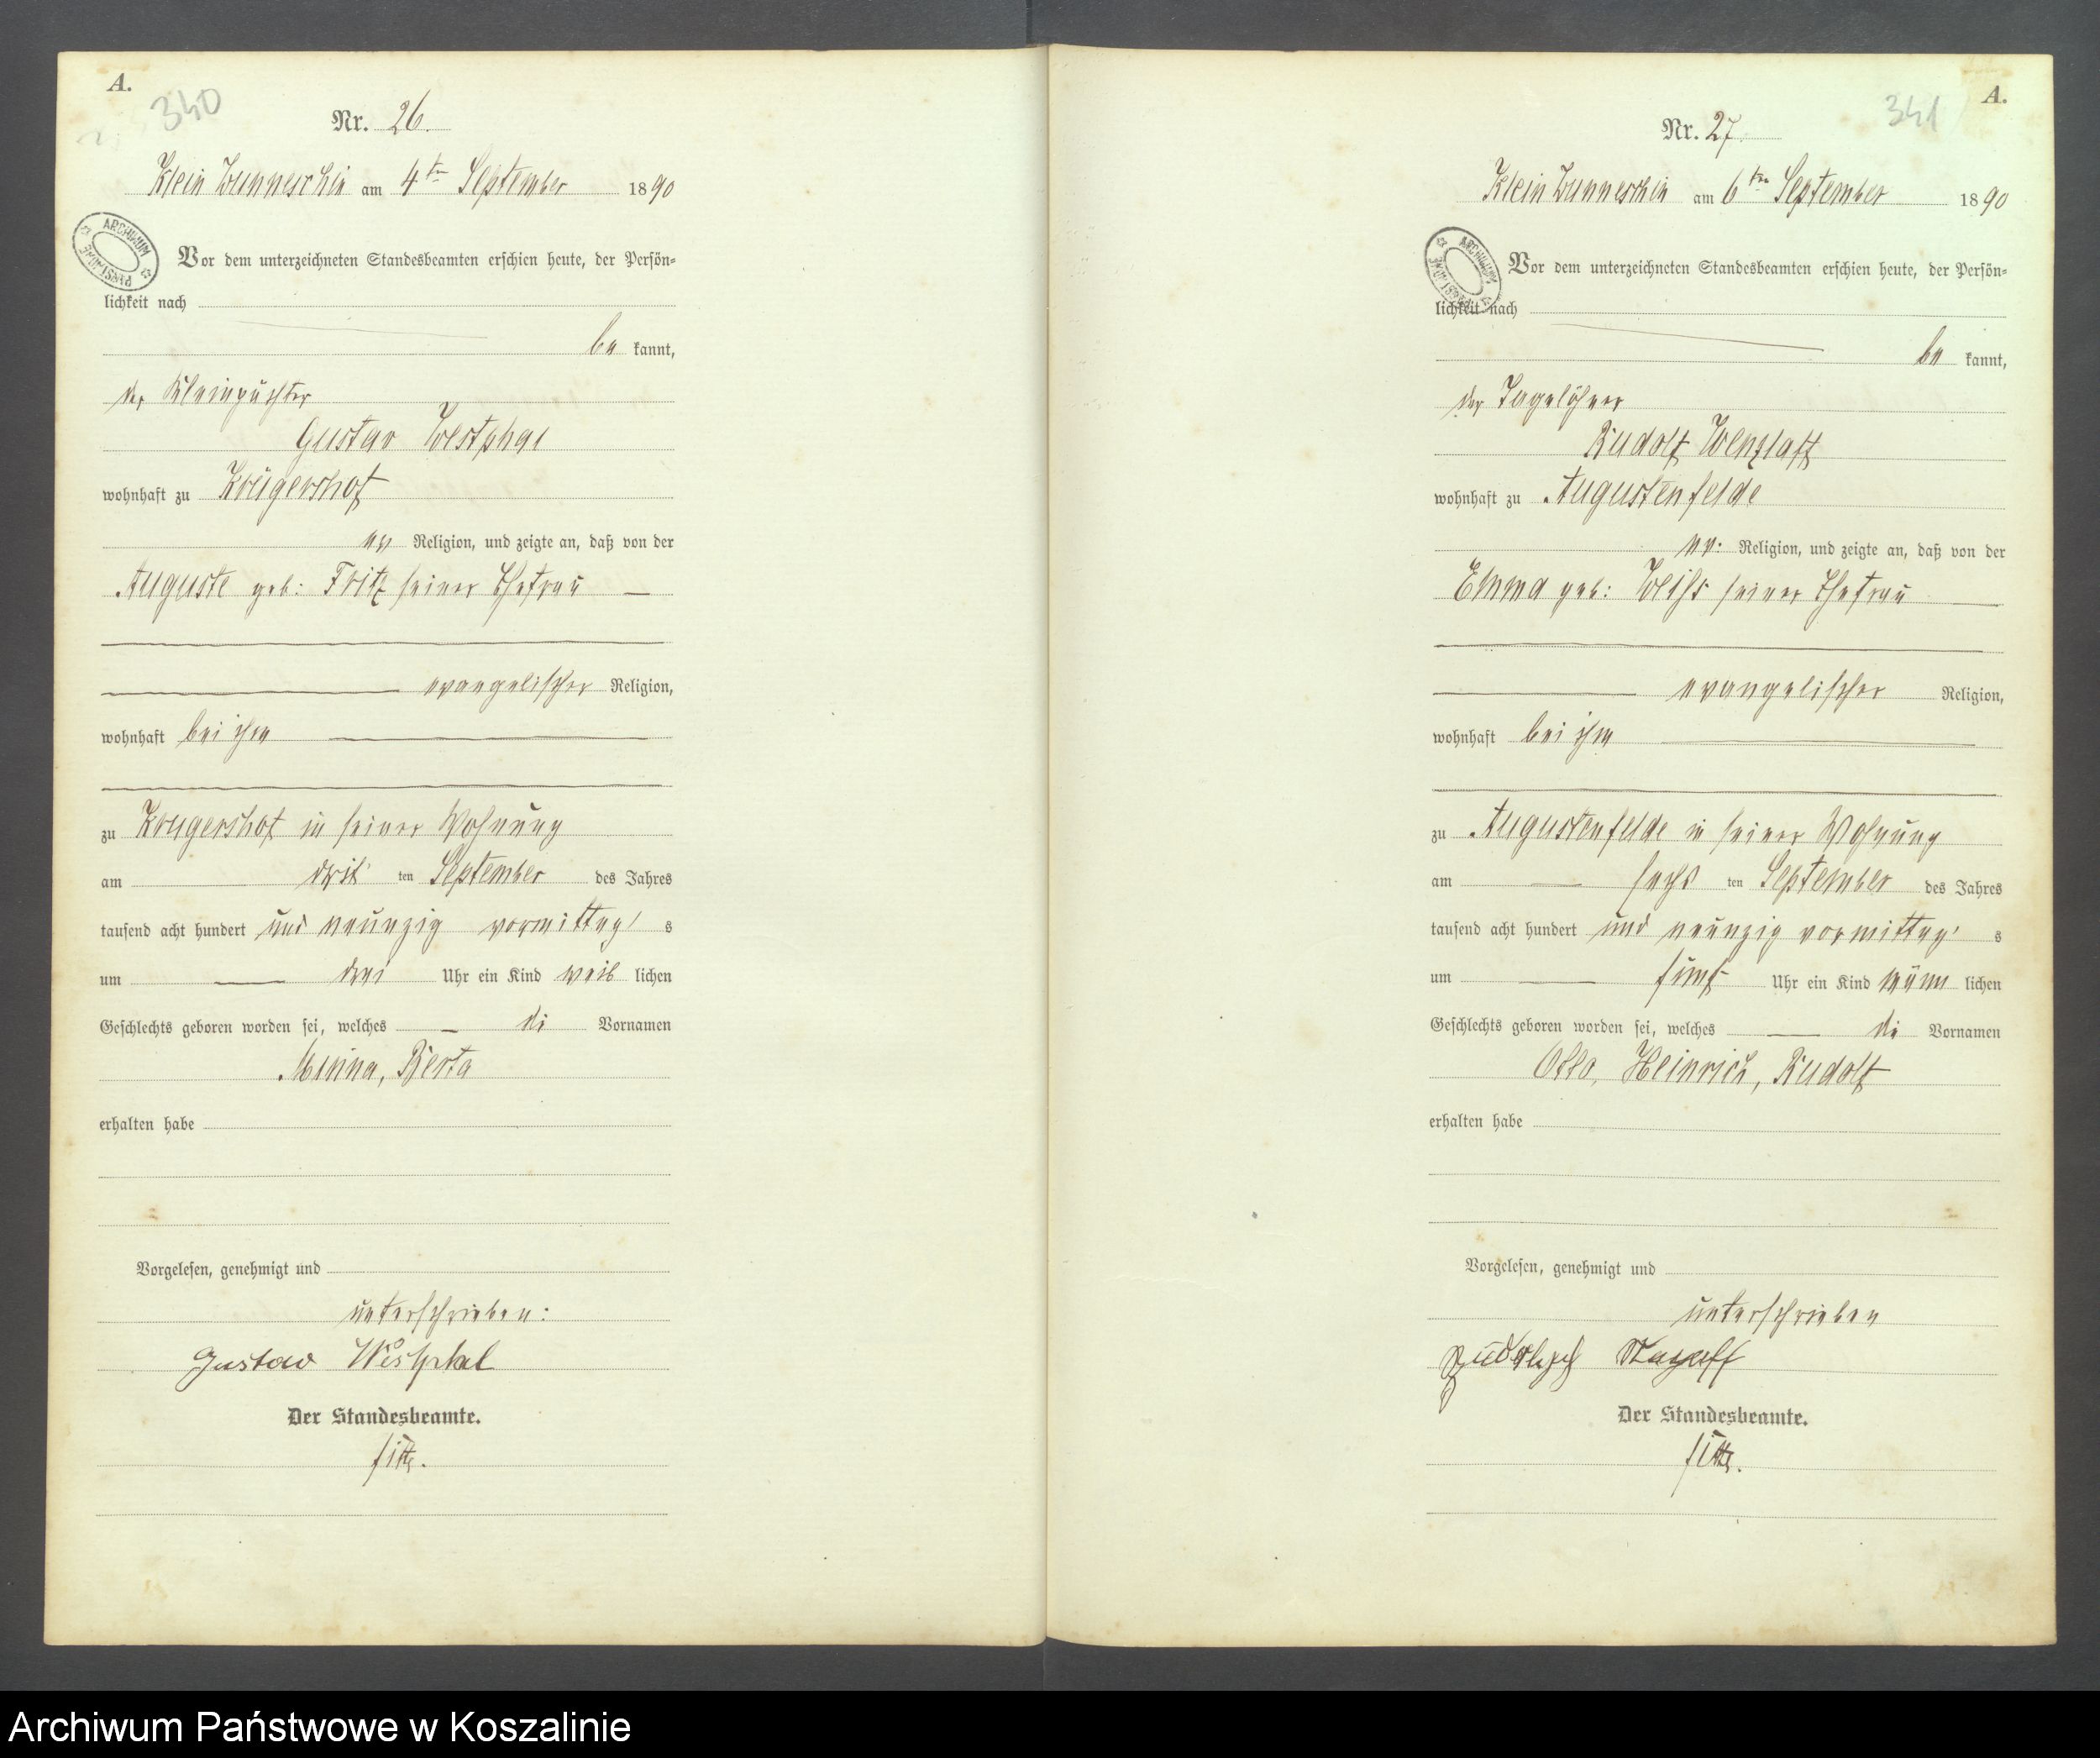 A.
340
Nr. 26.
Klein Wunneschin am 4ten September 1890
ARCHIWUM PAŃSTWOWE
Vor dem unterzeichneten Standesbeamten erschien heute, der Persön-
lichkeit nach
be kannt,
der Kleinpächter
Gustav Westphal
wohnhaft zu Krügershof
ev Religion, und zeigte an, daß von der
Auguste geb: Fritz seiner Ehefrau
evangelischer Religion,
wohnhaft bei ihm
zu Krügershof in seiner Wohnung
am drit ten September des Jahres
tausend acht hundert und neunzig vormittag s
um drei Uhr ein Kind weib lichen
Geschlechts geboren worden sei, welches di Vornamen
Minna, Berta
erhalten habe
Vorgelesen, genehmigt und
unterschrieben:
Gustav Westphal
Der Standesbeamte.
A.
341
Nr. 27.
Klein Wunneschin am 6ten September 1890
ARCHIWUM PAŃSTWOWE
Vor dem unterzeichneten Standesbeamten erschien heute, der Persön-
lichkeit nach
be kannt,
der Tagelöhner
Rudolf Wenzlaff
wohnhaft zu Augustenfelde
ev. Religion, und zeigte an, daß von der
Emma geb: seiner Ehefrau
evangelischer Religion,
wohnhaft bei ihm
zu Augustenfelde in seiner Wohnung
am sechs ten September des Jahres
tausend acht hundert und neunzig vormittag s
um fünf Uhr ein Kind männ lichen
Geschlechts geboren worden sei, welches di Vornamen
Otto, Heinrich, Rudolf
erhalten habe
Vorgelesen, genehmigt und
unterschrieben
Der Standesbeamte.
Archiwum Państwowe w Koszalinie